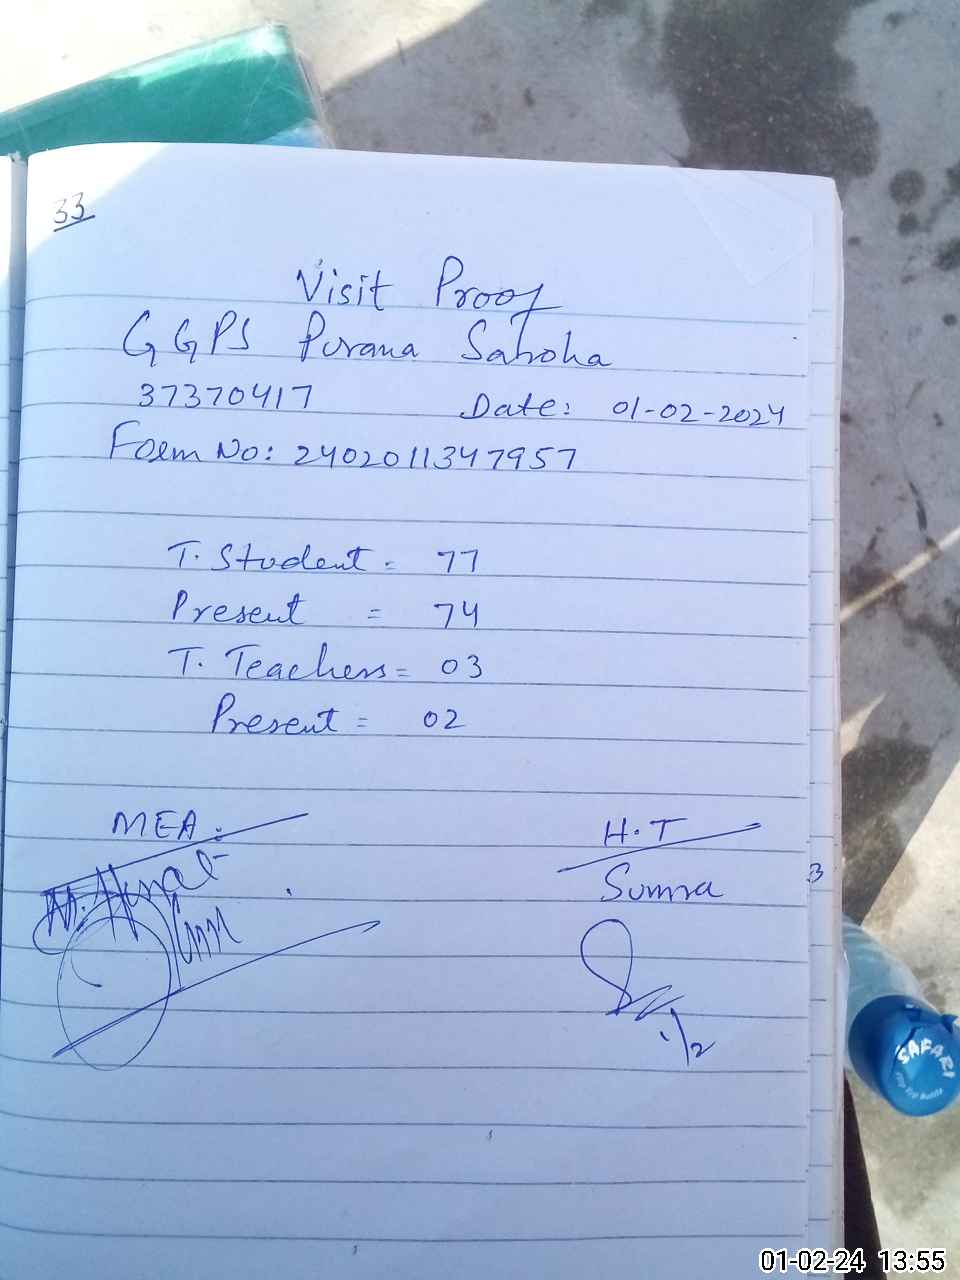 33
Visit Proof
GGPS Purana Sahoha
37370417 Date: 01-02-2024
Form No: 2402011347957
T. Student = 77
Present = 74
T. Teachers = 03
Present = 02
MEA. H.T
Sumra
1/2
3
SAFARI
01-02-24 13:55